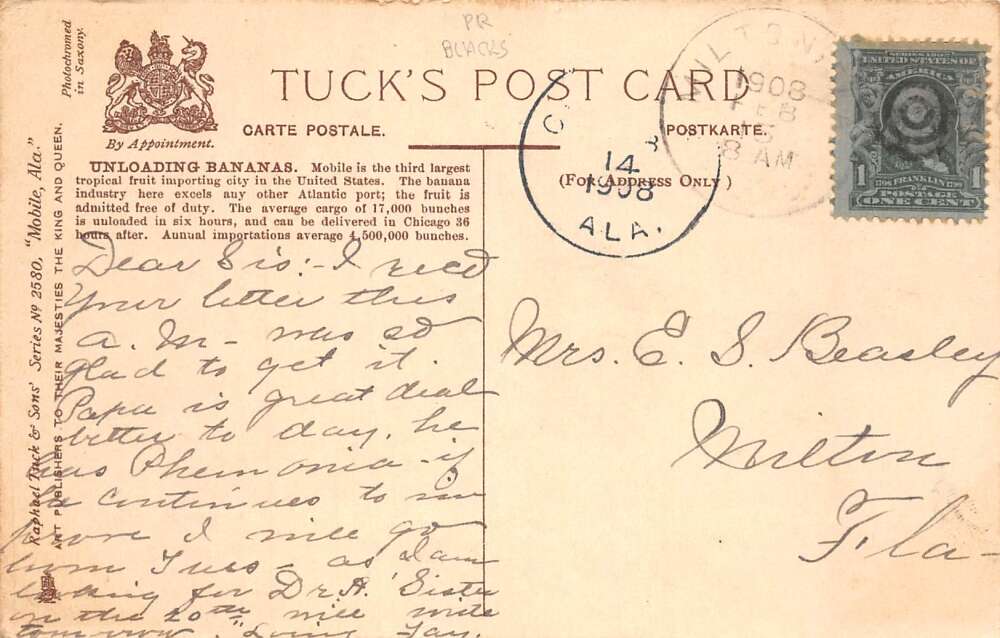 PR
BLACKS
Photochromed
in Saxony.
By Appointment.
TUCK'S POST CARD
CARTE POSTALE.
POSTKARTE.
(FOR ADDRESS ONLY)
MILTON
1908
FEB
15
8 AM
14
1908
ALA.
SERIES 1902
UNITED STATES OF
AMERICA
1
FRANKLIN
1
POSTAGE
ONE CENT
UNLOADING BANANAS. Mobile is the third largest
tropical fruit importing city in the United States. The banana
industry here excels any other Atlantic port; the fruit is
admitted free of duty. The average cargo of 17,000 bunches
is unloaded in six hours, and can be delivered in Chicago 36
hours after. Annual importations average 4,500,000 bunches.
Raphael Tuck & Sons' Series No 2580, "Mobile, Ala."
ART PUBLISHERS TO THEIR MAJESTIES THE KING AND QUEEN.
Dear Sis:- I recd
Your letter this
a. m- was so
glad to get it.
Papa is great deal
better to day. he
has Phemonia - if
he continues to im
prove I will go
hom Tues - as I am
looking for Dr. H. Sister
on the 20th will write
tomorrow. Loving Jay.
Mrs. E. S. Beasley
Milton
Fla-